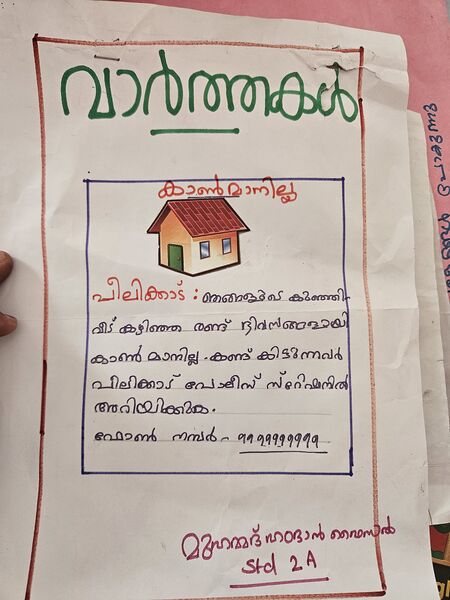 വാർത്തകൾ
കാൺമാനില്ല
പീലിക്കാട് : ഞങ്ങളുടെ കുഞ്ഞി-
വീട് കഴിഞ്ഞ രണ്ട് ദിവസങ്ങളായി
കാൺമാനില്ല. കണ്ട് കിട്ടുന്നവർ
പീലിക്കാട് പോലീസ് സ്റ്റേഷനിൽ
അറിയിക്കുക.
ഫോൺ നമ്പർ- 9999999999
മുഹമ്മദ് ഹംദാൻ ഫൈസാൽ
Std 2A